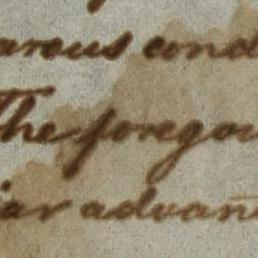 arous cond
The foregoi
iar advan